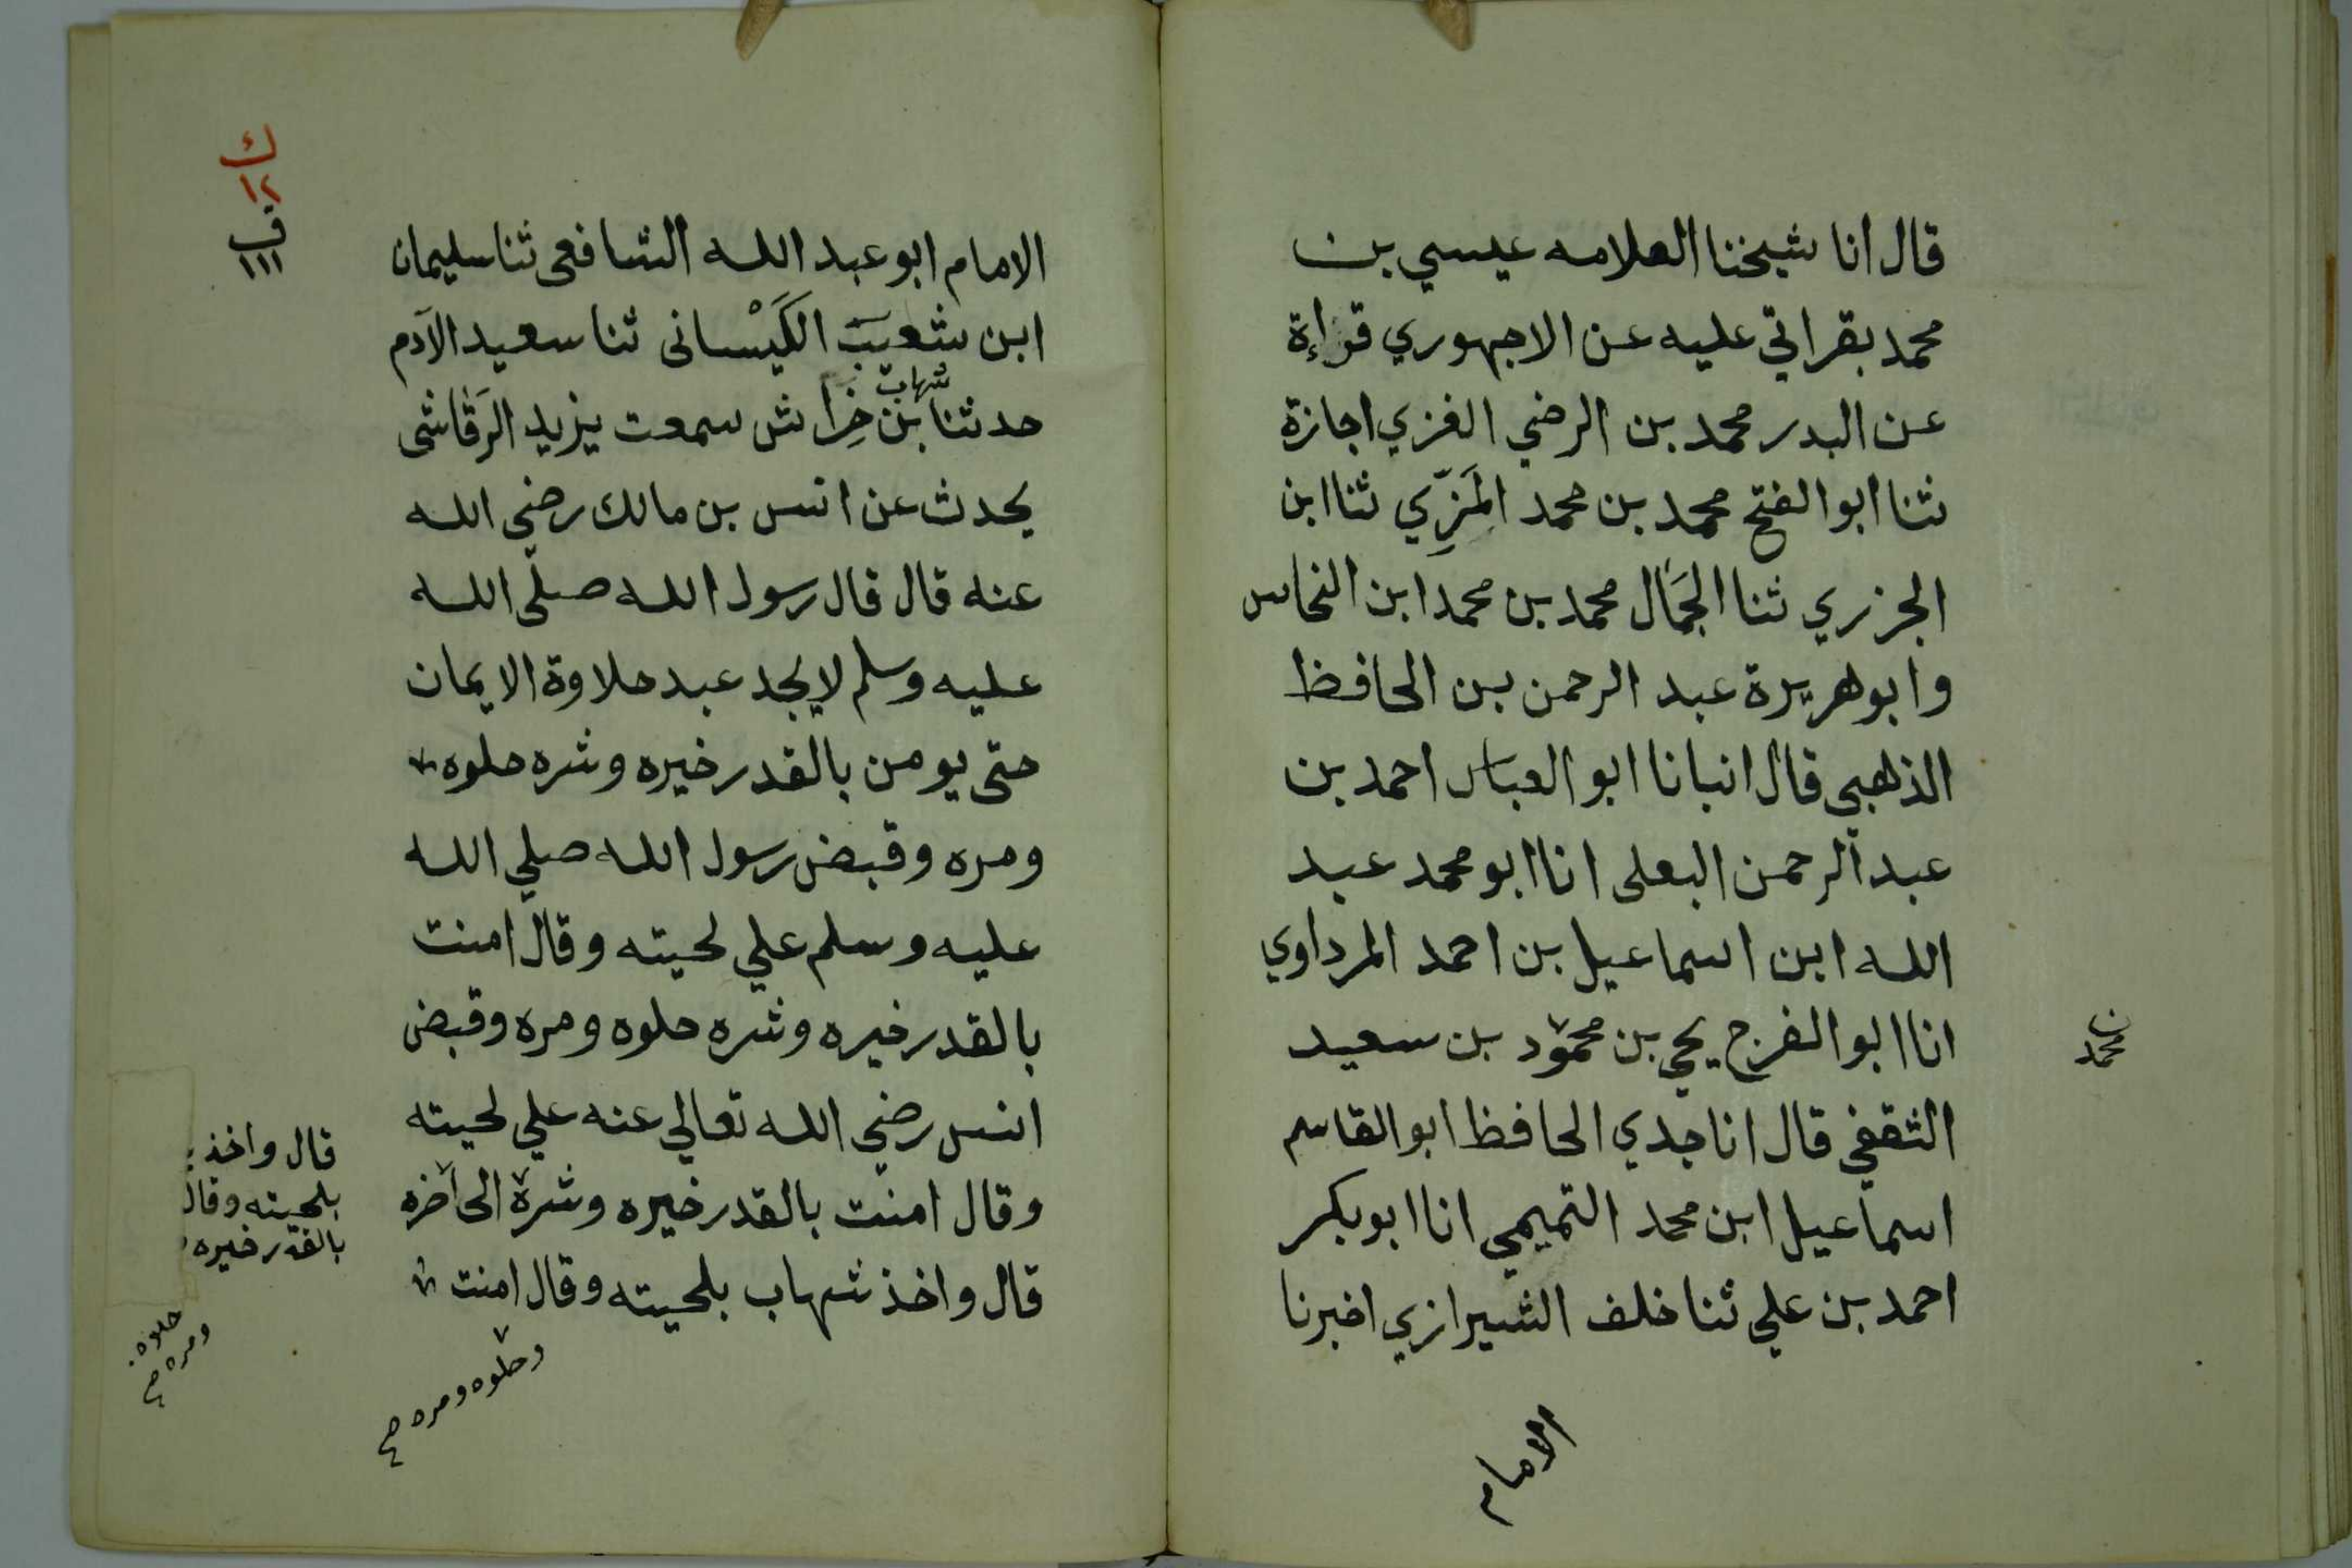 قال انا شيخنا العلامه عيسي بن
محمد بقراتي عليه عن الاجهوري قراءة
عن البدر محمد بن الرضي الغزي اجازة
ثنا ابو الفتح محمد بن محمد المَزِّي ثنا ابن
الجزري ثنا الجمَال محمد بن محمد ابن النحاس
وابو هريرة عبد الرحمن بن الحافظ
الذهبي قال انبانا ابو العباس احمد بن
عبد الرحمن البعلى انا ابو محمد عبد
الله ابن اسماعيل بن احمد المرداوي
انا ابو الفرج يحيى بن محمود بن سعيد
الثقفي قال انا جدي الحافظ ابو القاسم
اسماعيل ابن محمد التميمي انا ابو بكر
احمد بن علي ثنا خلف الشيرازي اخبرنا
الامام
ن
محمد
ك
١٢
ف
١١١
الامام ابو عبد الله الشافعى ثنا سليمان
ابن شعيب الكَيْسانى ثنا سعيد الآدم
شهاب
حدثنا بن خِراش سمعت يزيد الرَقاشى
يحدث عن انس بن مالك رضي الله
عنه قال قال رسول الله صلى الله
عليه وسلم لا يجد عبد حلاوة الايمان
حتى يومن بالقدر خيره وشره حلوه
ومره وقبض رسول الله صلي الله
عليه وسلم علي لحيته وقال امنت
بالقدر خيره وشره حلوه ومره وقبض
انس رضي الله تعالي عنه علي لحيته
وقال امنت بالقدر خيره وشره الى آخره
قال واخذ شهاب بلحيته وقال امنت
وحلوه ومره صح
قال واخذ
بلحيته وقال
بالقدر خيره
حلوه
ومره صح